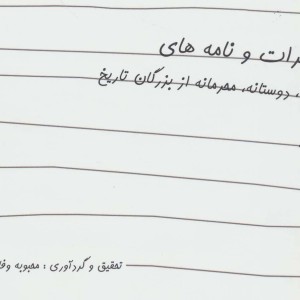 و نامه های
دوستانه، محرمانه از بزرگان تاریخ
تحقیق و گردآوری : محبوبه